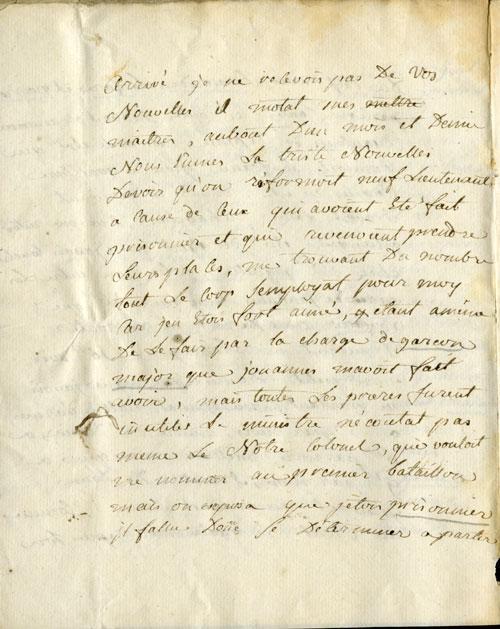 arrivé je ne recevois pas De vos
Nouvelles il motat mes mettre
maitres, aubout Dun mois et Demie
Nous Eumes La triste Nouvelles
Devoir qu'on reformoit neuf Lieutenant
a Cause de Ceux qui avoient Eté fait
prisonnier et qui revenoient prendre
Leurs places, me trouvant Du nombre
tout Le Corps Semployat pour moy
Car jen Etois fort aimé, y etant amême
De Le fair par la charge de garcon
major que jouannes mavoit fait
avoir, mais toutes Les furent
inutiles Le ministre nécoutat pas
meme Le Notre Colonel, qui vouloit
me nommer au premier bataillon
mais on exposa que jetois prisonnier
il falut Donc se Determiner a partir